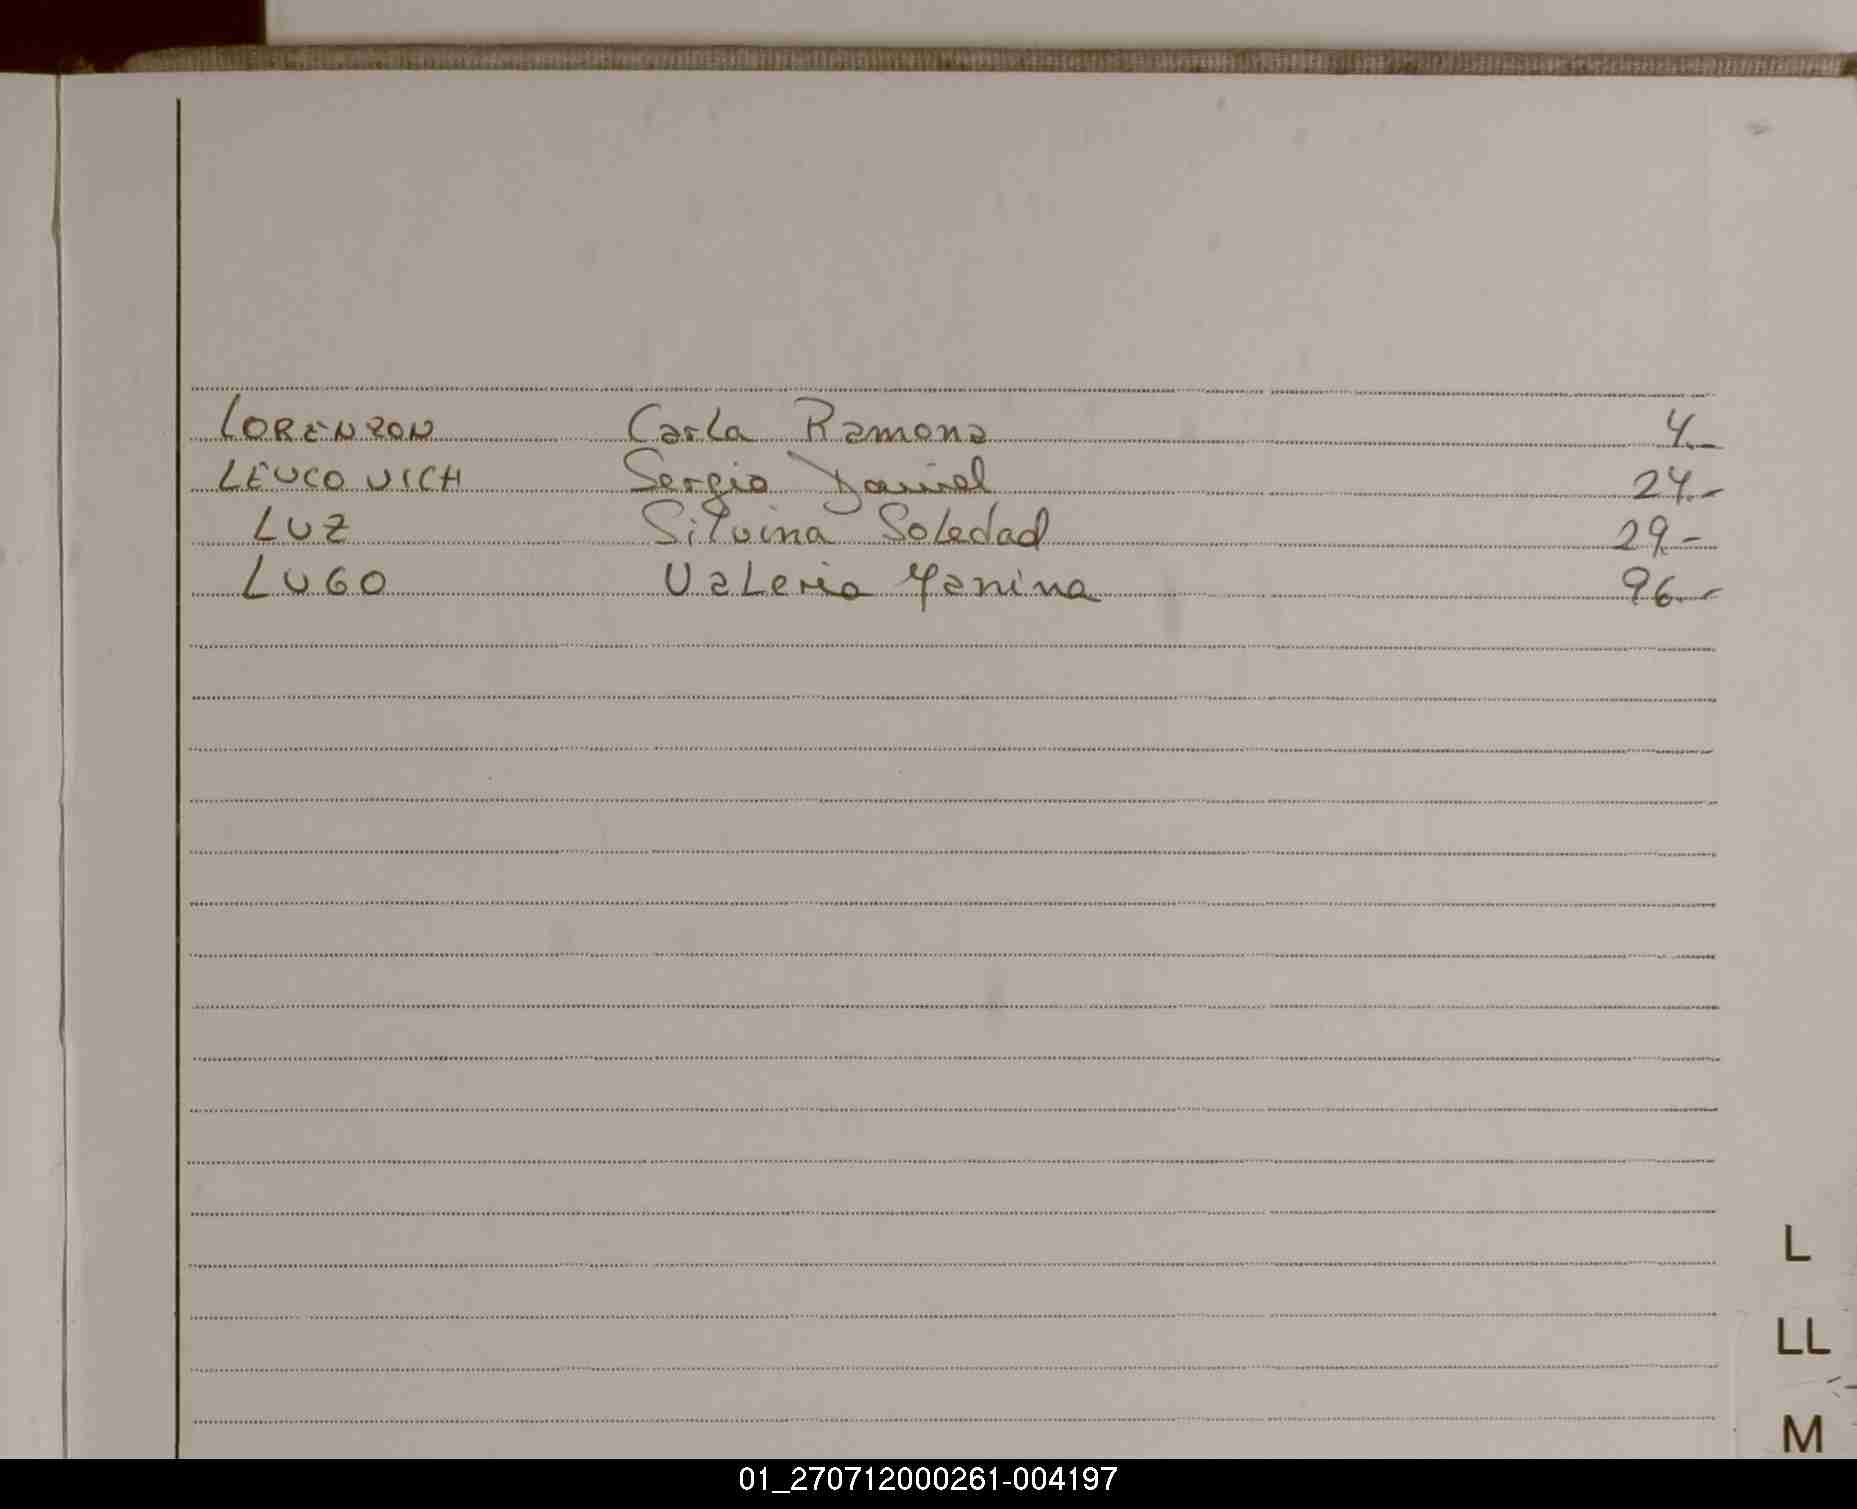 LORENZON Carla Ramona 4.-
LEUCOVICH Sergio Daniel 24.-
LUZ Silvina Soledad 29.-
LUGO Valeria Yanina 96.-
L
LL
M
01_270712000261-004197